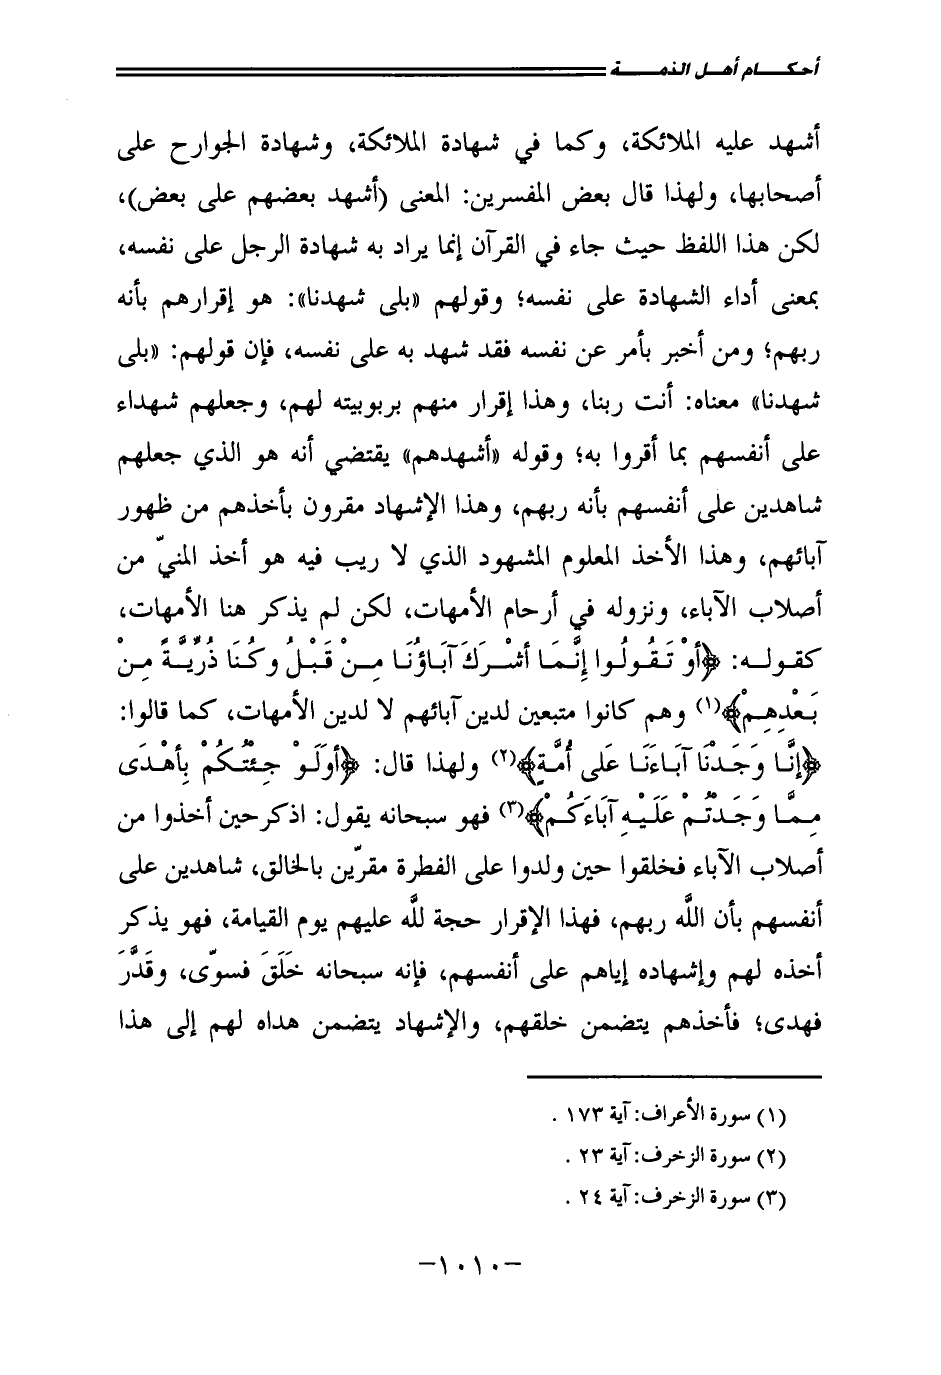 أحكـــام أهــل الذمـــة
أشهد عليه الملائكة، وكما في شهادة الملائكة، وشهادة الجوارح على
أصحابها، ولهذا قال بعض المفسرين: المعنى (أشهد بعضهم على بعض)،
لكن هذا اللفظ حيث جاء في القرآن إنما يراد به شهادة الرجل على نفسه،
بمعنى أداء الشهادة على نفسه؛ وقولهم «بلى شهدنا»: هو إقرارهم بأنه
ربهم؛ ومن أخبر بأمر عن نفسه فقد شهد به على نفسه، فإن قولهم: «بلى
شهدنا» معناه: أنت ربنا، وهذا إقرار منهم بربوبيته لهم، وجعلهم شهداء
على أنفسهم بما أقروا به؛ وقوله «أشهدهم» يقتضي أنه هو الذي جعلهم
شاهدين على أنفسهم بأنه ربهم، وهذا الإشهاد مقرون بأخذهم من ظهور
آبائهم، وهذا الأخذ المعلوم المشهود الذي لا ريب فيه هو أخذ المنيّ من
أصلاب الآباء، ونزوله في أرحام الأمهات، لكن لم يذكر هنا الأمهات،
كقولـه: ﴿أَوْ تَقُولُوا إِنَّمَا أَشْرَكَ آبَاؤُنَا مِـنْ قَبْلُ وَكُنَا ذُرِّيَّةً مِنْ
بَعْدِهِمْ﴾(١) وهم كانوا متبعين لدين آبائهم لا لدين الأمهات، كما قالوا:
﴿إِنَّا وَجَدْنَا آبَاءَنَا عَلَى أُمَّةٍ﴾(٢) ولهذا قال: ﴿أَوَلَوْ جِئْتُكُمْ بِأَهْدَى
مِمَّا وَجَدْتُمْ عَلَيْهِ آبَاءَكُمْ﴾(٣) فهو سبحانه يقول: اذكر حين أخذوا من
أصلاب الآباء فخلقوا حين ولدوا على الفطرة مقرّين بالخالق، شاهدين على
أنفسهم بأن اللَّه ربهم، فهذا الإقرار حجة للَّه عليهم يوم القيامة، فهو يذكر
أخذه لهم وإشهاده إياهم على أنفسهم، فإنه سبحانه خَلَقَ فسوّى، وقَدَّرَ
فهدى؛ فأخذهم يتضمن خلقهم، والإشهاد يتضمن هداه لهم إلى هذا
(١) سورة الأعراف: آية ١٧٣ .
(٢) سورة الزخرف: آية ٢٣ .
(٣) سورة الزخرف: آية ٢٤ .
-١٠١٠-